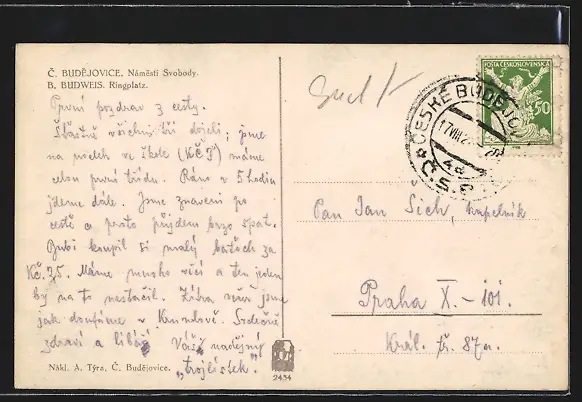 Č. BUDĚJOVICE, Náměstí Svobody.
B. BUDWEIS. Ringplatz.
První pozdrav z cesty.
Šťastně všichni tři dojeli; jsme
na nocleh ve škole (KČT) máme
celou první třídu. Ráno v 5 hodin
jdeme dále. Jsme znaveni po
cestě a proto půjdem brzo spat.
koupil si malý batoch za
Kč. 25. Máme mnoho věcí a ten jeden
by na to nestačil. Zítra večer jsme
jak doufáme v Srdečně
zdraví a líbá Váš nadějný
„trojlístek."
Nákl. A. Týra, Č. Budějovice.
2454
POŠTA ČESKOSLOVENSKÁ
50
ČESKÉ BUDĚJOVICE
17 VIII
4a
Č.S.
Pan Jan Šich, kapelník
Praha X.-101.
Král. tř. 87n.